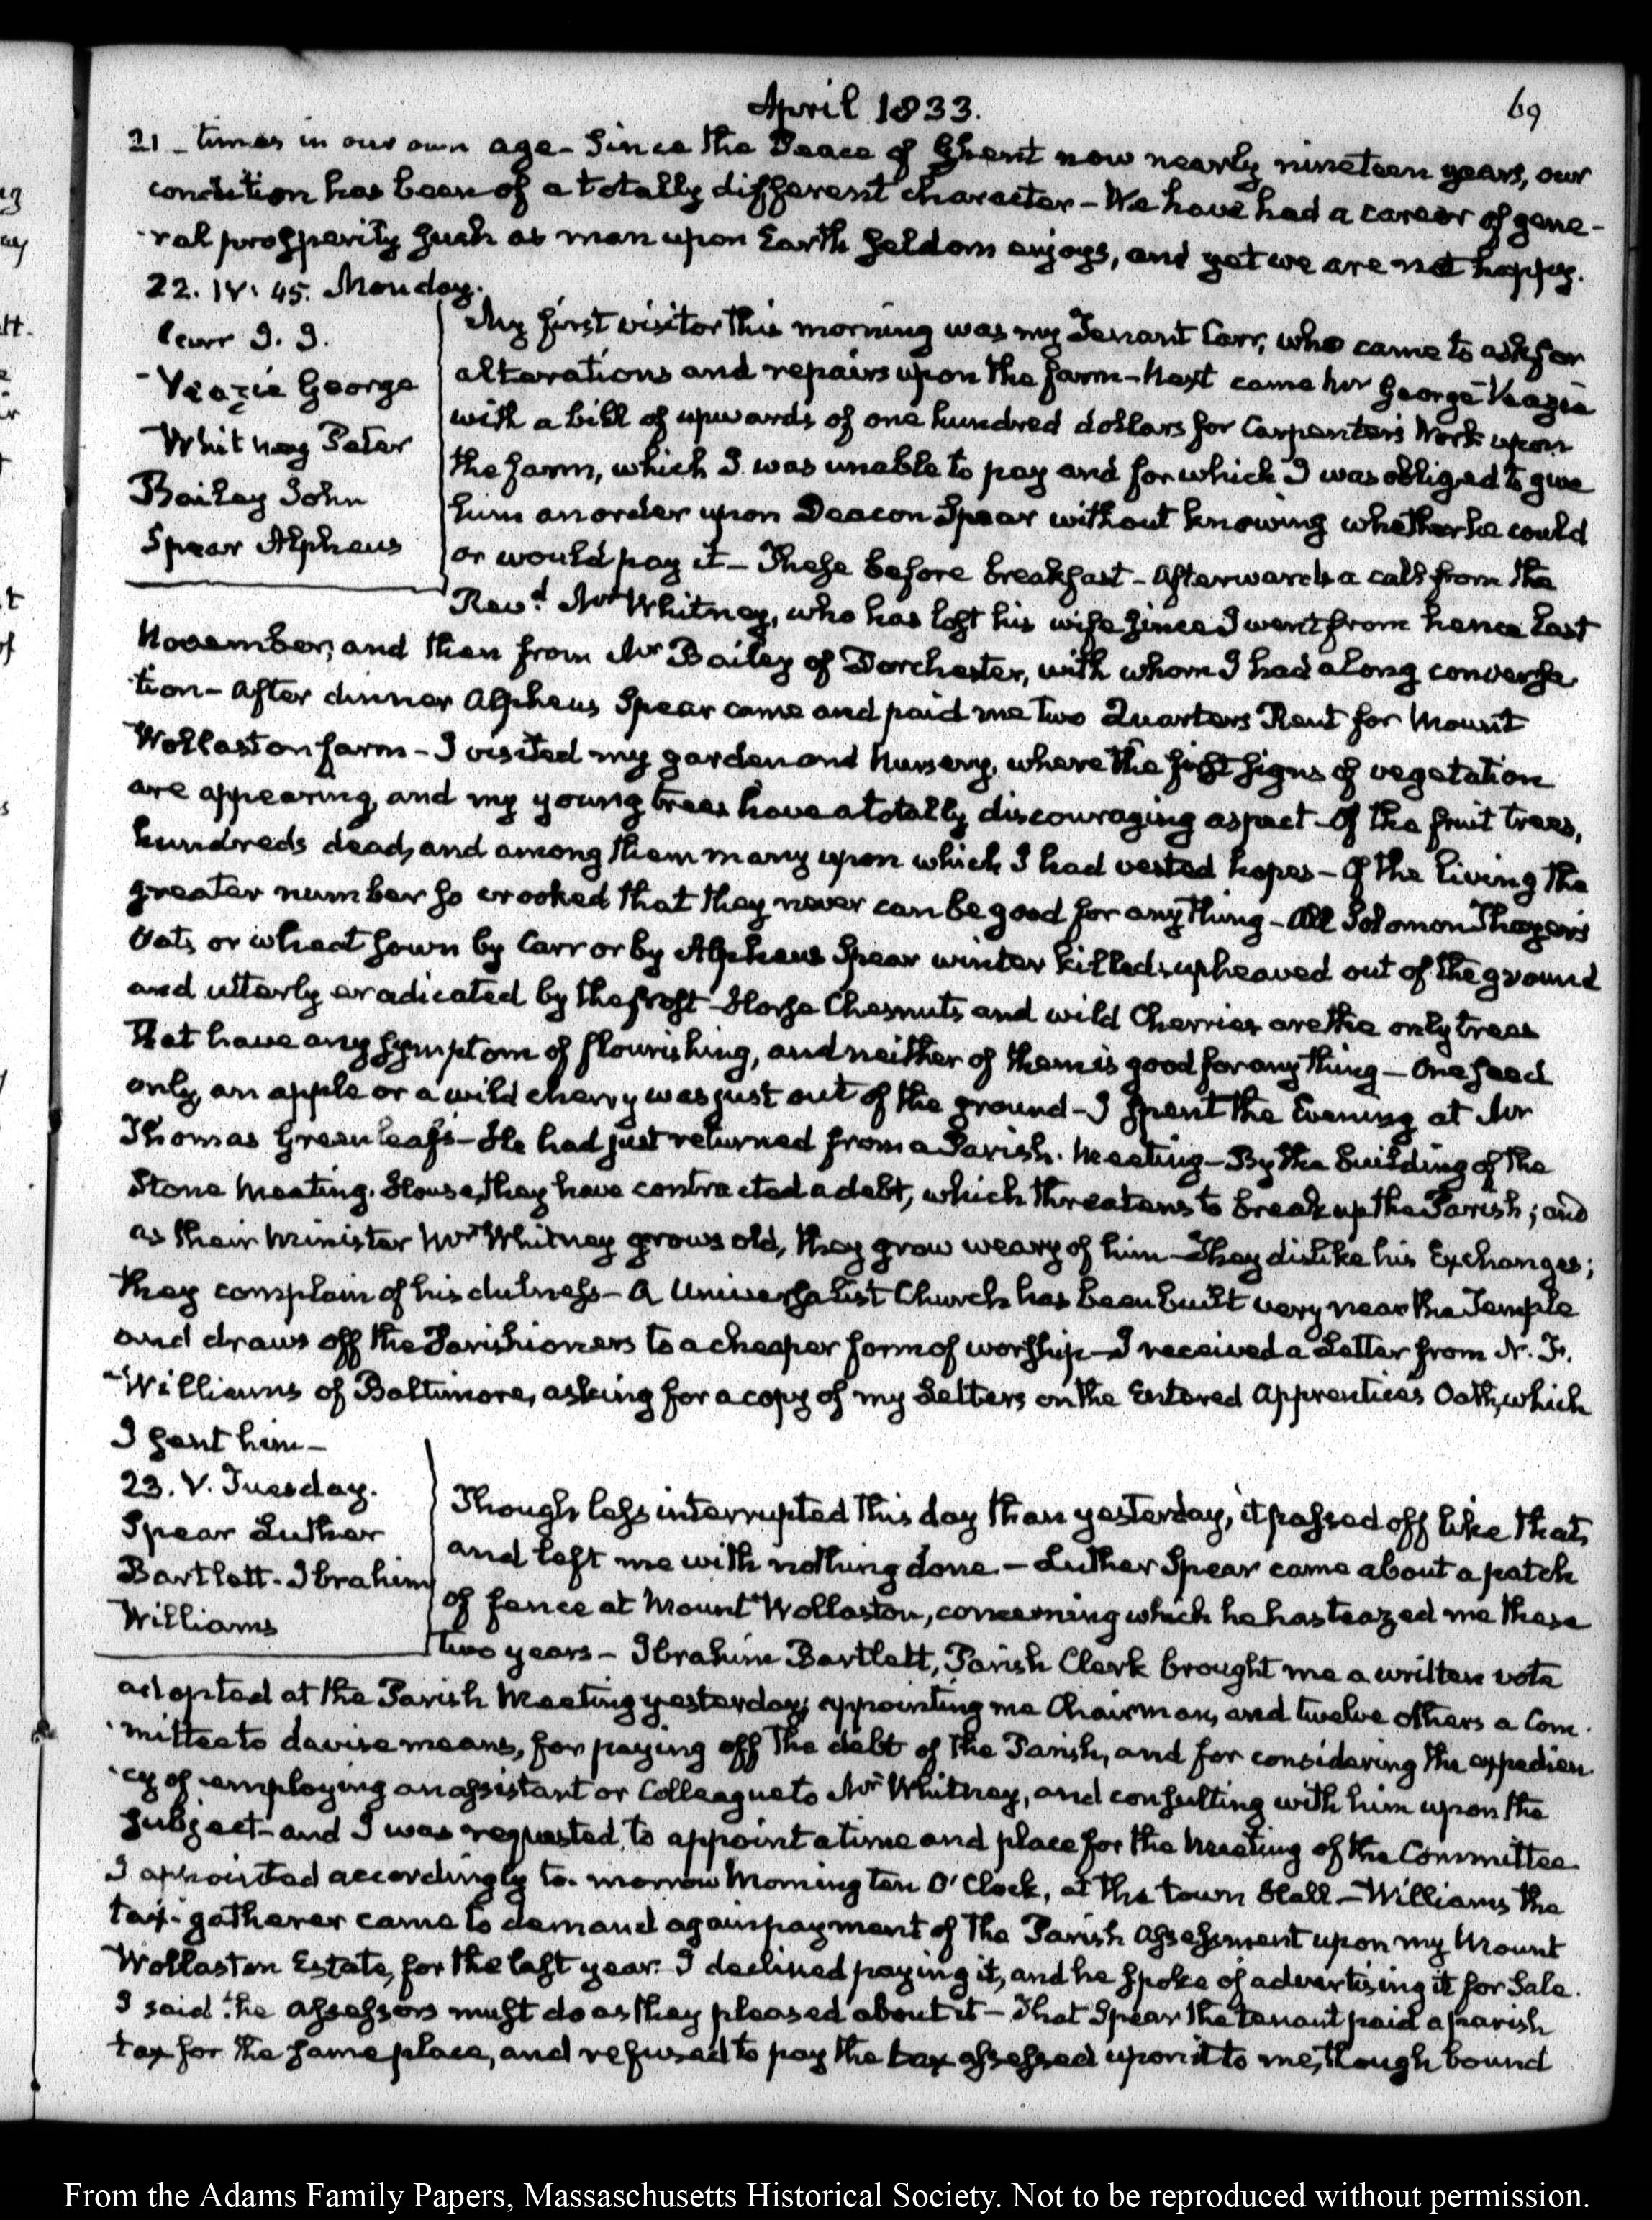 April 1833.
69
21 - times in our own age - Since the Peace of Ghent now nearly nineteen years, our
condition has been of a totally different character - We have had a career of gene-
ral prosperity such as man upon Earth seldom enjoys, and yet we are not happy.
22. IV. 45. Monday.
Carr J. J.
Veazie George
Whitney Peter
Bailey John
Spear Alpheus
My first visitor this morning was my Tenant Carr, who came to ask for
alterations and repairs upon the farm - Next came Mr George Veazie
with a bill of upwards of one hundred dollars for Carpenter's Work upon
the farm, which I was unable to pay and for which I was obliged to give
him an order upon Deacon Spear without knowing whether he could
or would pay it - These before breakfast - Afterwards a call from the
Revd. Mr Whitney, who has lost his wife since I went from hence last
November, and then from Mr Bailey of Dorchester, with whom I had a long conversa-
tion - After dinner Alpheus Spear came and paid me two Quarters Rent for Mount
Wollaston farm - I visited my garden and Nursery, where the first signs of vegetation
are appearing, and my young trees have a totally discouraging aspect - Of the fruit trees,
hundreds dead, and among them many upon which I had vested hopes - Of the living the
greater number so crooked that they never can be good for any thing - All Solomon Thayer's
Oats or wheat sown by Carr or by Alpheus Spear winter killed, upheaved out of the ground
and utterly eradicated by the frost - Horse Chesnuts and wild Cherries are the only trees
that have any symptom of flourishing, and neither of them is good for any thing - One seed
only, an apple or a wild cherry was just out of the ground - I spent the Evening at Mr
Thomas Greenleaf's - He had just returned from a Parish Meeting - By the building of the
Stone Meeting-House, they have contracted a debt, which threatens to break up the Parish; and
as their Minister Mr Whitney grows old, they grow weary of him - They dislike his Exchanges;
they complain of his dulness - A Universalist Church has been built very near the Temple
and draws off the Parishioners to a cheaper form of worship - I received a Letter from N. F.
Williams of Baltimore, asking for a copy of my Letters on the Entered Apprentices Oath, which
I sent him -
23. V. Tuesday.
Spear Luther
Bartlett - Ibrahim
Williams
Though less interrupted this day than yesterday, it passed off like that,
and left me with nothing done - Luther Spear came about a patch
of fence at Mount Wollaston, concerning which he has teazed me these
two years - Ibrahim Bartlett, Parish Clerk brought me a written vote
adopted at the Parish Meeting yesterday, appointing me Chairman, and twelve others a Com-
mittee to devise means, for paying off the debt of the Parish, and for considering the expedien-
cy of employing an assistant or Colleague to Mr Whitney, and consulting with him upon the
subject - and I was requested to appoint a time and place for the Meeting of the Committee
I appointed accordingly to-morrow Morning ten O'Clock, at the town Hall - Williams the
tax-gatherer came to demand again payment of the Parish assessment upon my Mount
Wollaston Estate, for the last year. I declined paying it, and he spoke of advertising it for Sale.
I said the assessors must do as they pleased about it - That Spear the tenant paid a parish
tax for the same place, and refused to pay the tax assessed upon it to me, though bound
From the Adams Family Papers, Massachusetts Historical Society. Not to be reproduced without permission.